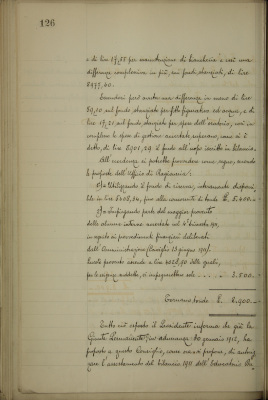 126
e di lire 17,55 per manutenzione di biancheria e così una
differenza complessiva in più, sui fondi stanziati, di lire
8477,40.
Essendosi però avuta una differenza in meno di lire
50,00 sul fondo stanziato per
lire 17,21, sul fondo stanziato per spese dell'
complesso le spese di gestione accertate superano, come si è
detto, di lire 8401,29 il fondo all'uopo iscritto in bilancio.
All'eccedenza si potrebbe provvedere come segue, secondo
le proposte dell'Ufficio di Ragioneria:
a) Utilizzando il fondo di riserva, interamente disponi-
bile in lire 5408,34, fino alla concorrenza di tonde £. 5.400.-
b) Impiegando parte del maggior provento
delle alunne interne accertato nel 1° trimestre 1911,
in seguito ai provvedimenti finanziari deliberati
dall'Amministrazione (Consiglio 13 giugno 1911).
Questo provento ascende a lire 4028,50 delle quali,
per le esigenze suddette, si impiegherebbero sole . . . . " 3.500.-
Tornano tonde £. 8.900.-
Tutto ciò esposto il Presidente informa che già la
Giunta Permanente, in adunanza 30 gennaio 1912, ha
proposto a questo Consiglio, come ora si propone, di autoriz-
zare l'assestamento del bilancio 1911 dell'Educatorio